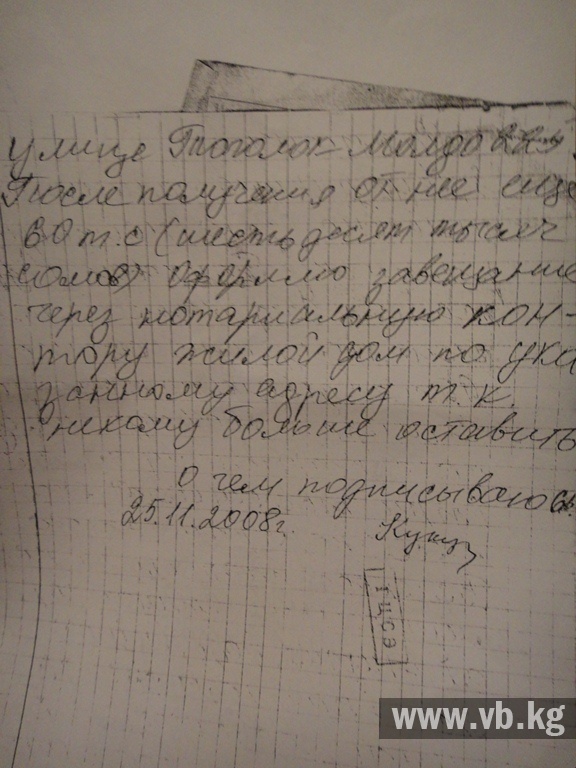 улице Тоголок Молдо 22
После получения от нее еще
60 т.с (шестьдесят тысяч
сомов) оформлю завещание
через нотариальную кон-
тору жилой дом по ука
занному адресу т.к.
никому больше оставить
о чем подписываюсь.
25.11.2008г.
ГЦСЭ
www.vb.kg